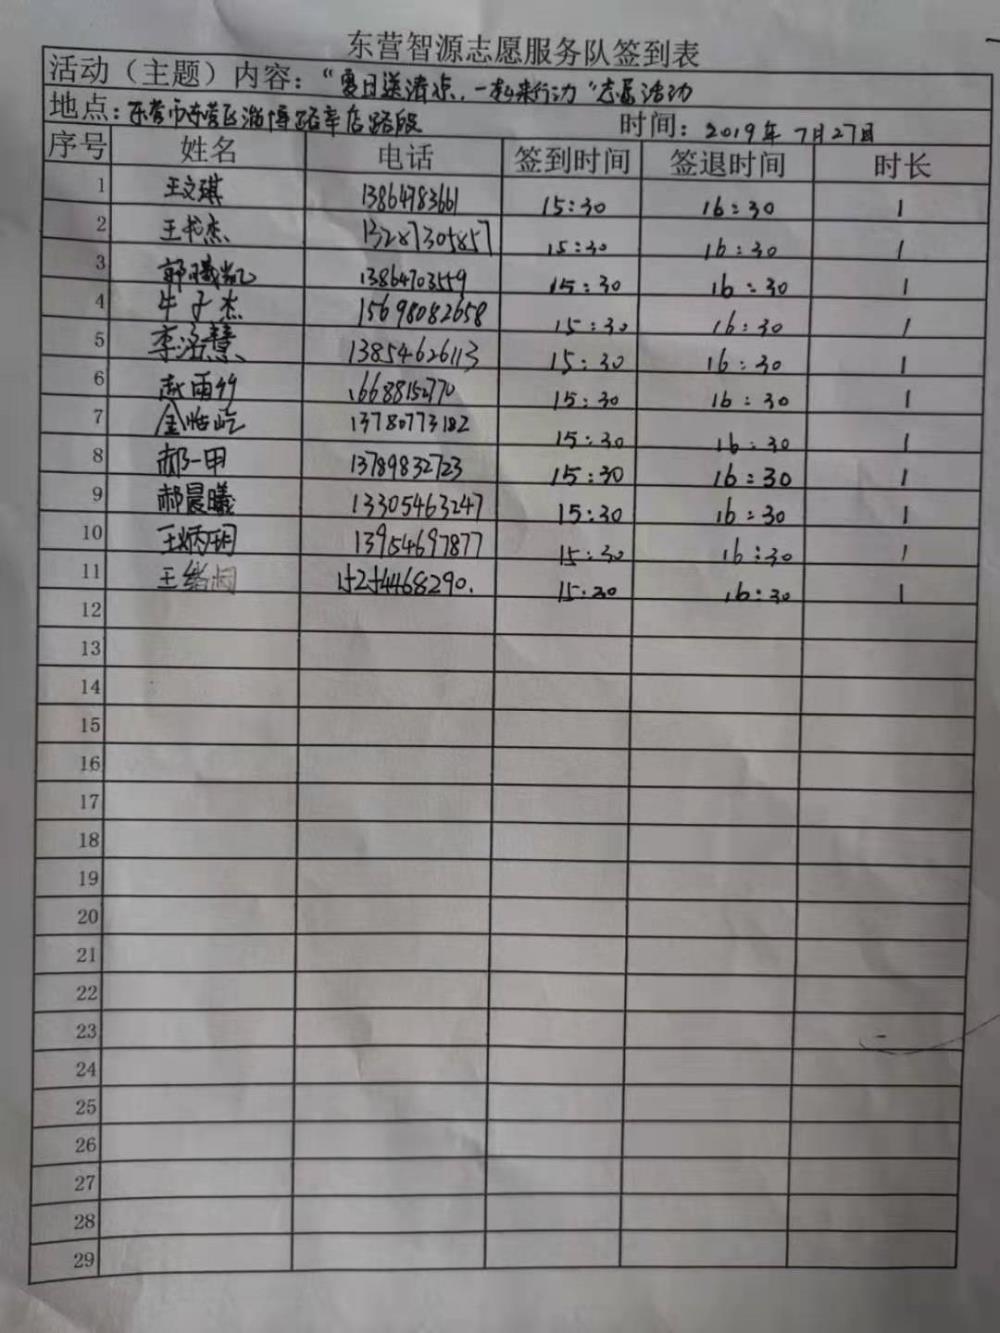 东营智源志愿服务队签到表
活动（主题）内容：“夏日送清凉，一起来行动”志愿活动
地点：东营市东营区淄博路辛店路段 时间：2019年7月27日
序号 姓名 电话 签到时间 签退时间 时长
1 王文琪 13864783661 15:30 16:30 1
2 王书杰 13287305857 15:30 16:30 1
3 郭曦凯 13864703559 15:30 16:30 1
4 牛子杰 15698082658 15:30 16:30 1
5 李泓慧 13854626113 15:30 16:30 1
6 赵雨竹 16688152770 15:30 16:30 1
7 金恬屹 13780773182 15:30 16:30 1
8 郝一甲 13789832723 15:30 16:30 1
9 郝晨曦 13305463247 15:30 16:30 1
10 王炳玥 13954697877 15:30 16:30 1
11 王绪润 15254468290. 15:30 16:30 1
12
13
14
15
16
17
18
19
20
21
22
23
24
25
26
27
28
29